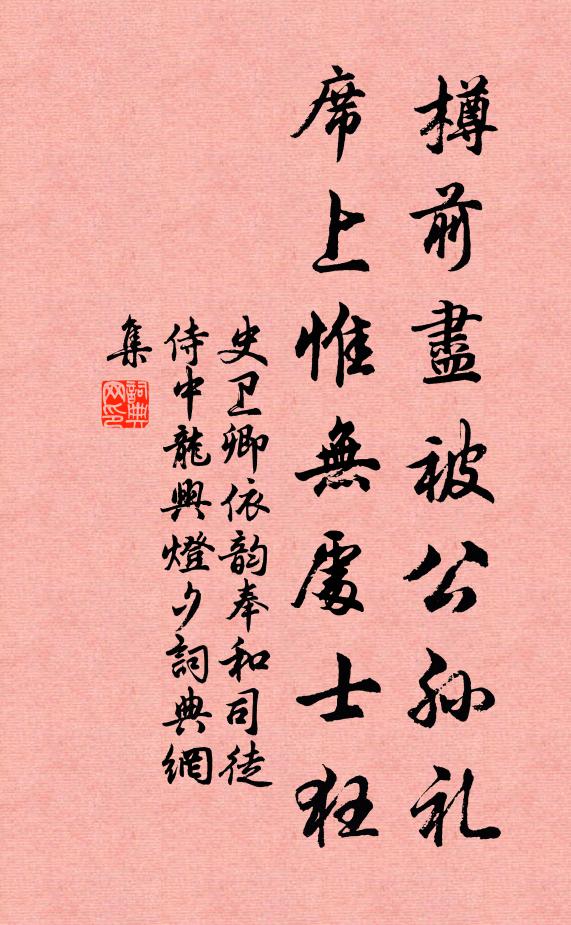 樽前盡被公孙礼
席上惟無處士狂
史卫卿依韵奉和司徒
侍中龍興燈夕詞典網
集
詞典网印